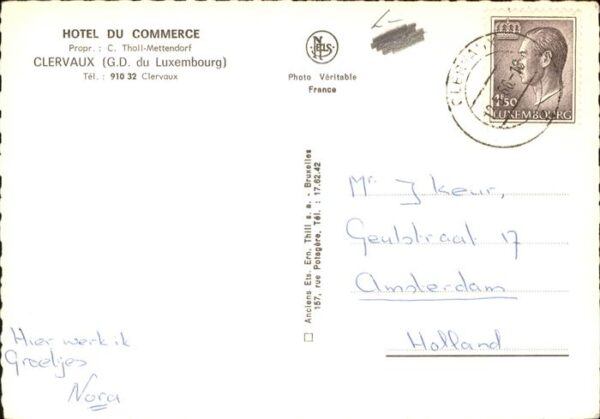 HOTEL DU COMMERCE
Propr.: C. Tholl-Mettendorf
CLERVAUX (G.D. du Luxembourg)
Tél.: 910 32 Clervaux
NELS
Photo Véritable
France
CLERVAUX
1F50
LUXEMBOURG
Anciens Ets. Ern. Thill s. a. - Bruxelles
157, rue Potagère, Tél.: 17.62.42
Mr J Keur,
Geulstraat 17
Amsterdam
Holland
Hier werk ik
Groetjes
Nora